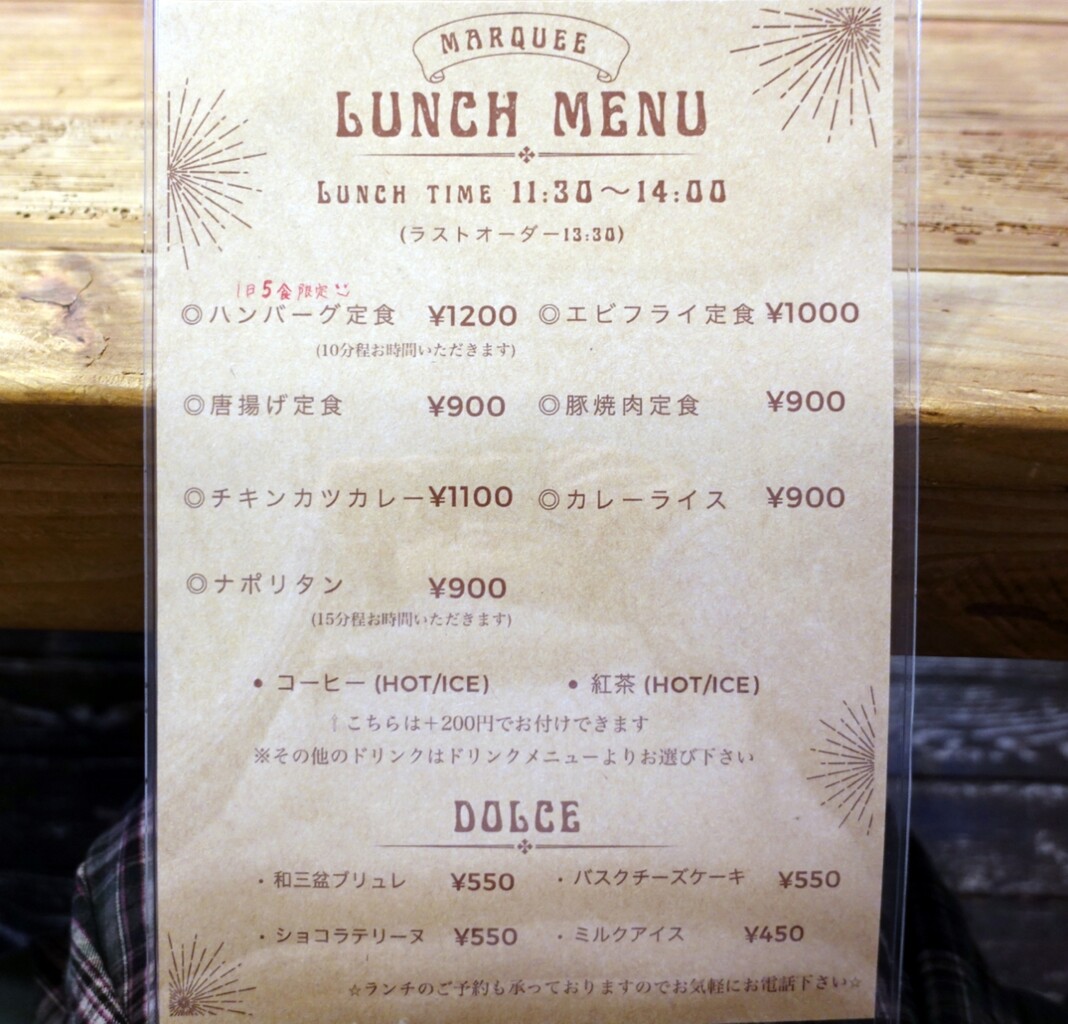 MARQUEE
LUNCH MENU
LUNCH TIME 11:30〜14:00
(ラストオーダー13:30)
1日5食限定
◎ハンバーグ定食 ¥1200 ◎エビフライ定食 ¥1000
(10分程お時間いただきます)
◎唐揚げ定食 ¥900 ◎豚焼肉定食 ¥900
◎チキンカツカレー ¥1100 ◎カレーライス ¥900
◎ナポリタン ¥900
(15分程お時間いただきます)
• コーヒー (HOT/ICE) • 紅茶 (HOT/ICE)
↑こちらは+200円でお付けできます
※その他のドリンクはドリンクメニューよりお選び下さい
DOLCE
・和三盆ブリュレ ¥550 ・バスクチーズケーキ ¥550
・ショコラテリーヌ ¥550 ・ミルクアイス ¥450
☆ランチのご予約も承っておりますのでお気軽にお電話下さい☆